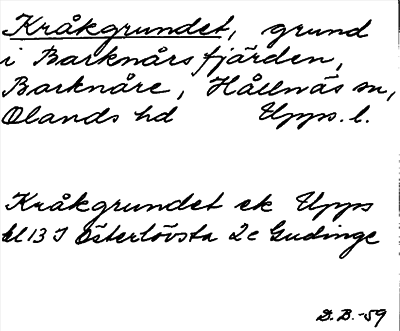 Kråkgrundet, grund
i Barknårsfjärden,
Barknåre, Hållnäs sn,
Olands hd Upps. l.
Kråkgrundet ek Upps
bl 13 I Österlövsta 2c Gudinge
D.B.-59